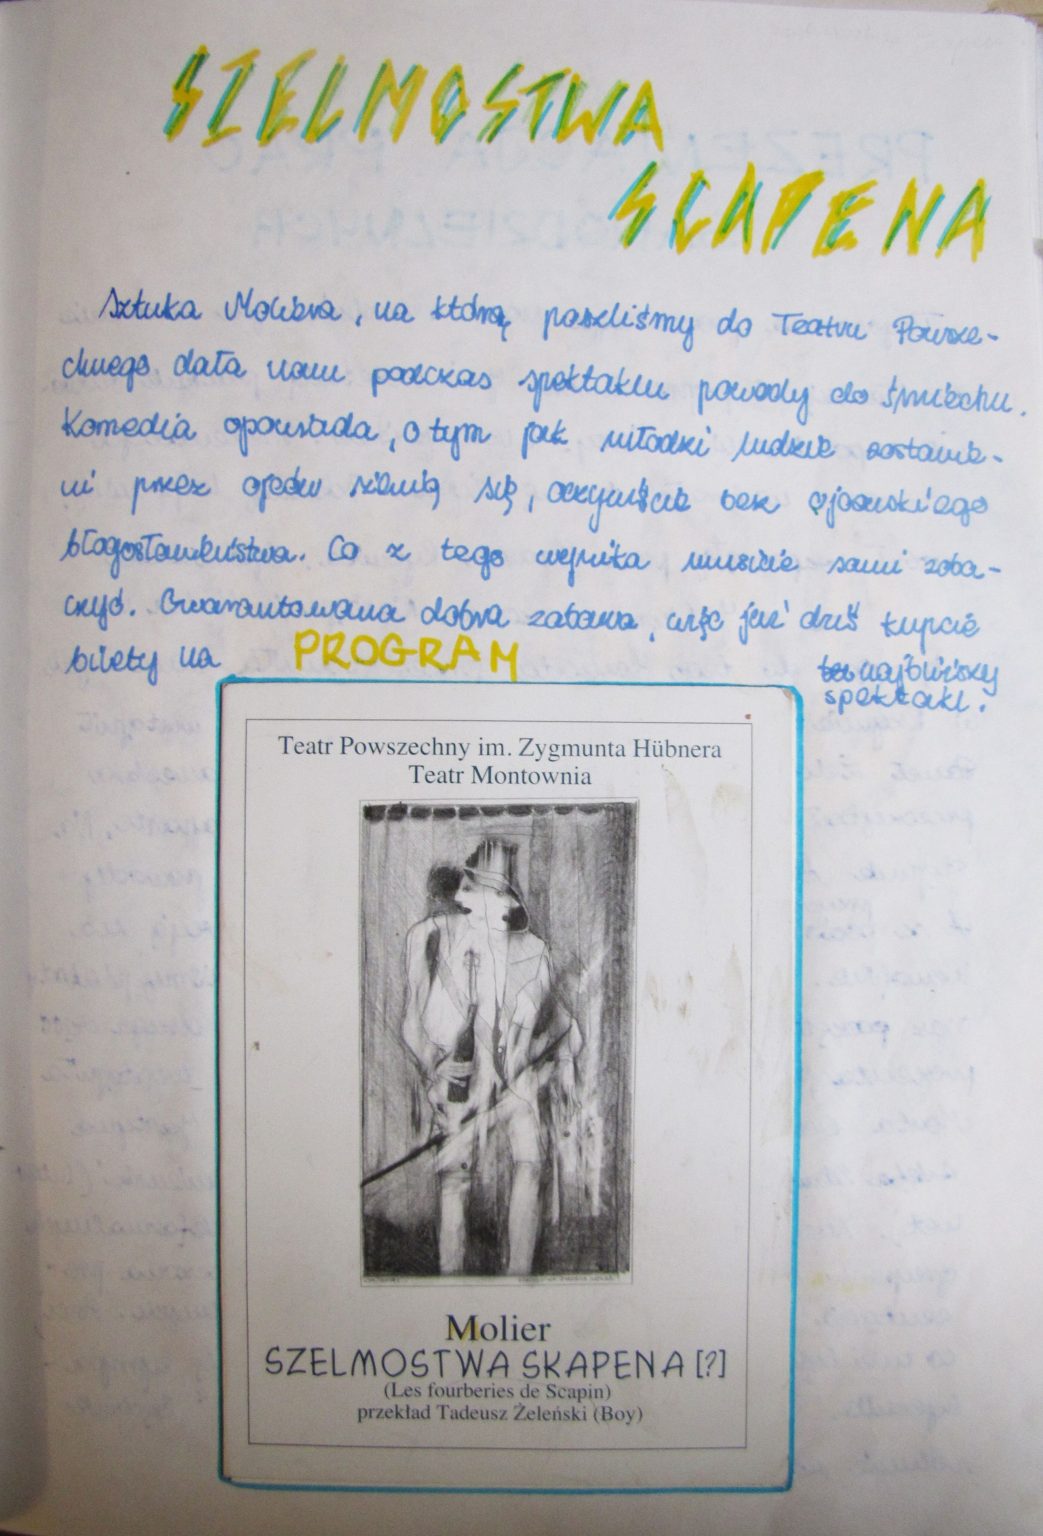 SZELMOSTWA
SCAPENA
Sztuka Moliera, na którą poszliśmy do Teatru Powsze-
chnego dała nam podczas spektaklu powody do śmiechu.
Komedia opowiada, o tym jak młodzi ludzie zostawie-
ni przez ojców żenią się, oczywiście bez ojcowskiego
błogosławieństwa. Co z tego wynika musicie sami zoba-
czyć. Gwarantowana dobra zabawa, więc już dziś kupcie
bilety na najbliższy
spektakl!
PROGRAM
Teatr Powszechny im. Zygmunta Hübnera
Teatr Montownia
Molier
SZELMOSTWA SKAPENA [?]
(Les fourberies de Scapin)
przekład Tadeusz Żeleński (Boy)